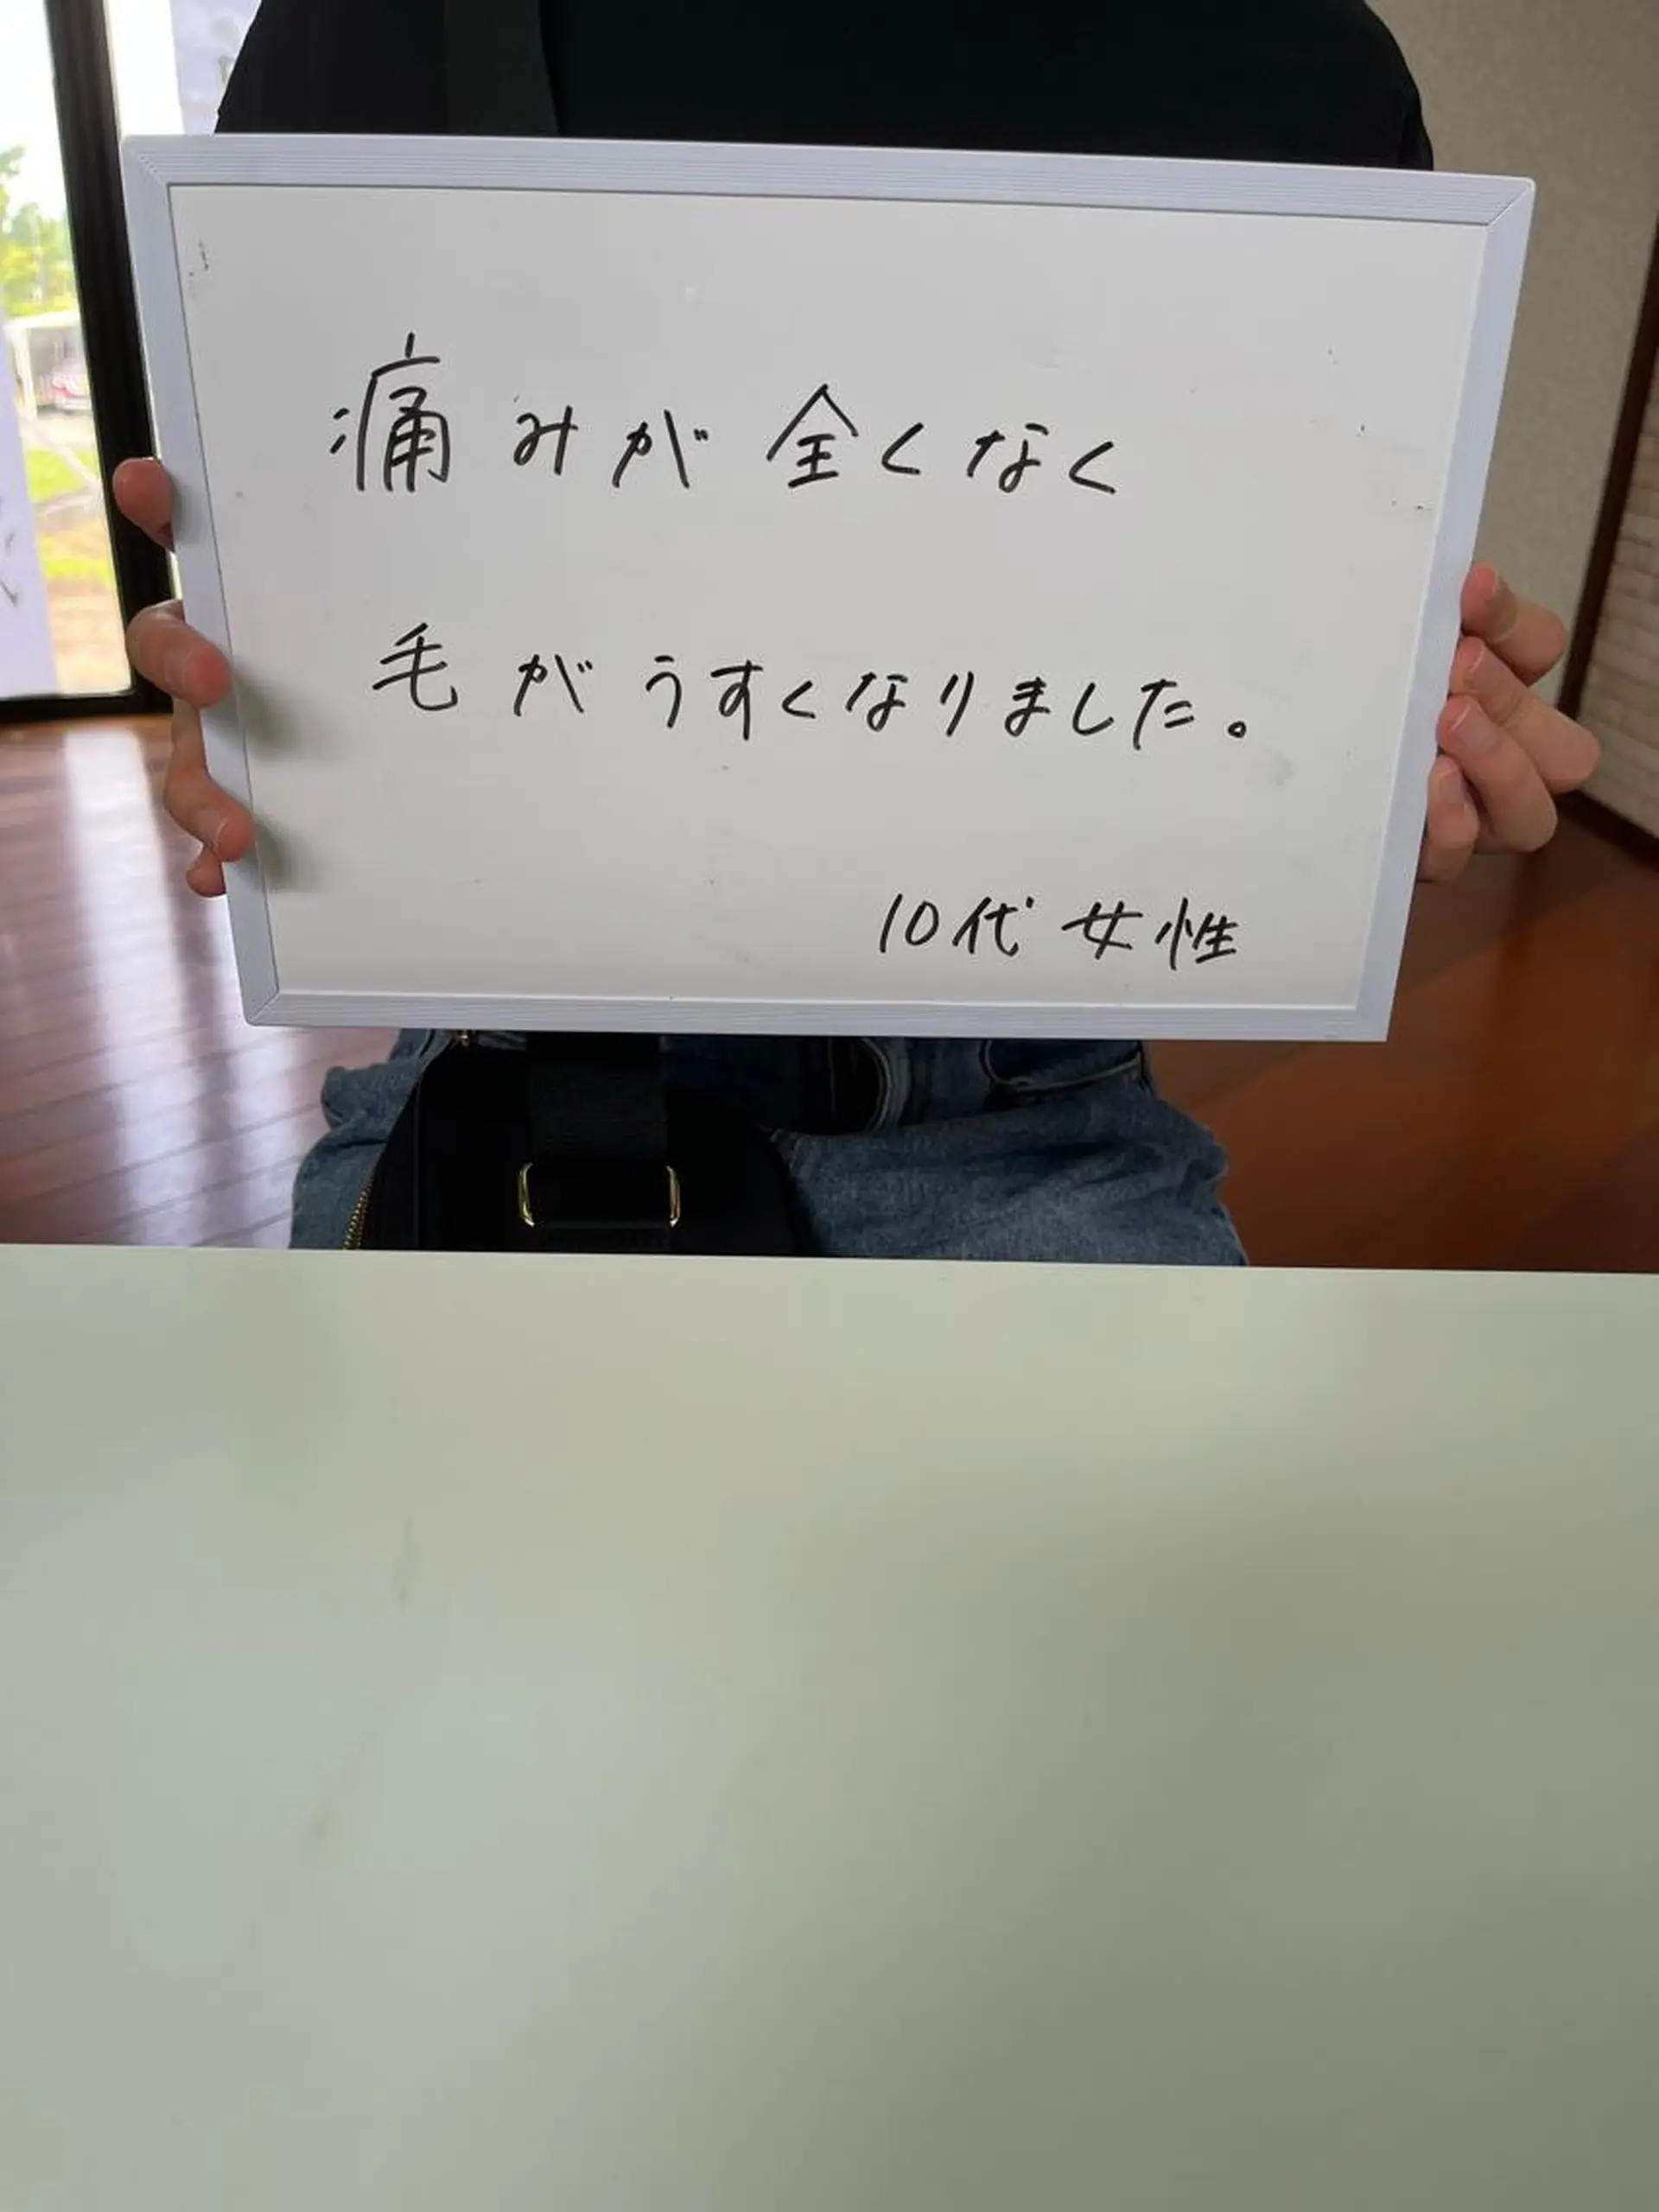 痛みが全くなく
毛がうすくなりました。
10代 女性